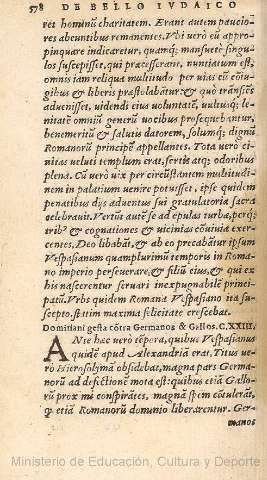 578 DE BELLO IVDAICO
ret hominū charitatem. Erant autem paucio-
res abeuntibus remanentes. Vbi verò eū appro-
pinquare indicaretur, quamq́; mansuetè singu-
los suscepisset, qui præcesserant, nuntiatum est,
omnis iam reliqua multitudo per vias cū cōiu-
gibus & liberis præstolabātur: & quò trāsiēs
aduenisset, videndi eius voluntatē, vultusq́; le-
nitatē omniū generū vocibus prosequebantur,
benemeritū & salutis datorem, solumq́; dignū
Romanorū principē appellantes. Tota verò ci-
uitas veluti templum erat, sertis atq; odoribus
plena. Cū verò vix per circūstantem multitudi-
nem in palatium uenire potuisset, ipse quidem
penatibus dijs aduentus sui gratulatoria sacra
celebrauit. Vertūt autē se ad epulas turba, perq́;
trib⁹ & cognationes & vicinias cōuiuia exer-
centes, Deo libabāt, & ab eo precabātur ipsum
Vespasianum quamplurimū temporis in Roma-
no imperio perseuerare, & filiū eius, & qui ex
his nascerentur seruari inexpugnabilē princi-
patū. Vrbs quidem Romana Vespasiano ita su-
scepto, statim maxima felicitate crescebat.
Domitiani gesta cōtra Germanos & Gallos. C. XXIII.
ANte hæc vero tēpora, quibus Vespasianus
quidē apud Alexandriā erat, Titus ve-
rò Hierosolyma obsidebat, magna pars Germa-
norū ad defectionē mota est: quibus etiā Gallo-
rū proximi conspirātes, magnā spem cōtulerāt,
ꝙ etiā Romanorū dominio liberarentur. Ger-
manos
Ministerio de Educación, Cultura y Deporte